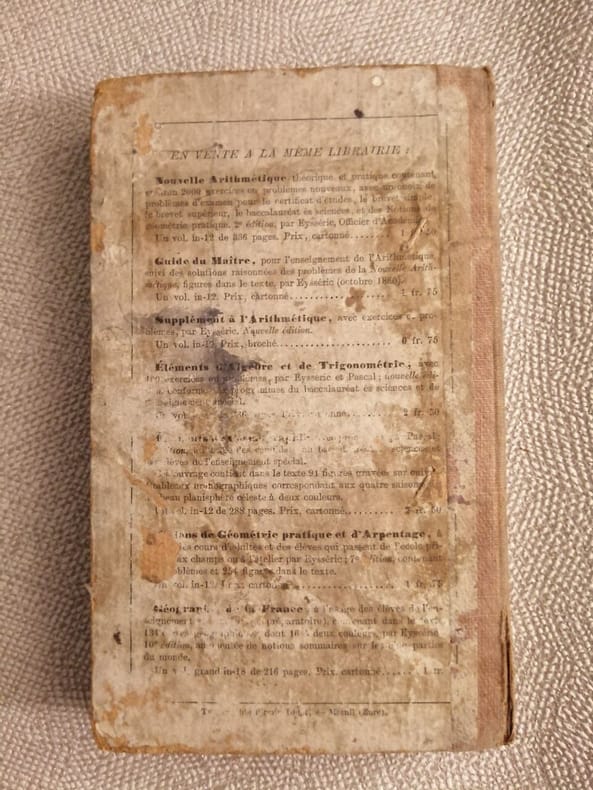 EN VENTE A LA MÊME LIBRAIRIE :
Nouvelle Arithmétique, théorique et pratique contenant
2000 exercices ou problèmes nouveaux, avec un choix de
problèmes d'examen pour le certificat d'études, le brevet simple,
le brevet supérieur, le baccalauréat ès sciences, et des Notions de
géométrie pratique. 2e édition, par Eysséric, Officier d'Académie.
Un vol. in-12 de 336 pages. Prix, cartonné
Guide du Maître, pour l'enseignement de l'Arithmétique,
suivi des solutions raisonnées des problèmes de la Nouvelle Arith-
métique, figures dans le texte, par Eysséric (octobre 1880).
Un vol. in-12. Prix, cartonné fr. 75
Supplément à l'Arithmétique, avec exercices et pro-
blèmes, par Eysséric. Nouvelle édition.
Un vol. in-12 Prix, broché 0 fr. 75
Éléments d'Algèbre et de Trigonométrie, avec
exercices ou problèmes, par Eysséric et Pascal; nouvelle
conforme programmes du baccalauréat ès sciences et de
l'enseignement spécial.
Un vol. 2 fr. 50
Pascal;
sciences et
élèves de l'enseignement spécial.
ouvrage contient dans le texte 91 figures gravées sur cuivre
tableaux uranographiques correspondant aux quatre saisons
beau planisphère céleste à deux couleurs.
Un vol. in-12 de 288 pages. Prix, cartonné 2 fr. 50
Notions de Géométrie pratique et d'Arpentage, à
des cours d'adultes et des élèves qui passent de l'école pri-
aux champs ou à l'atelier par Eysséric; 7e édition, contenant
problèmes et 254 figures dans le texte.
Un vol. in-12 cartonné 1 fr. 75
Géographie de la France, à l'usage des élèves de l'en-
seignement contenant dans le texte
134 dont 16 à deux couleurs, par Eysséric
10e édition, augmentée de notions sommaires sur les parties
du monde.
Un vol. grand in-18 de 216 pages. Prix, cartonné 1 fr.
Mesnil (Eure).